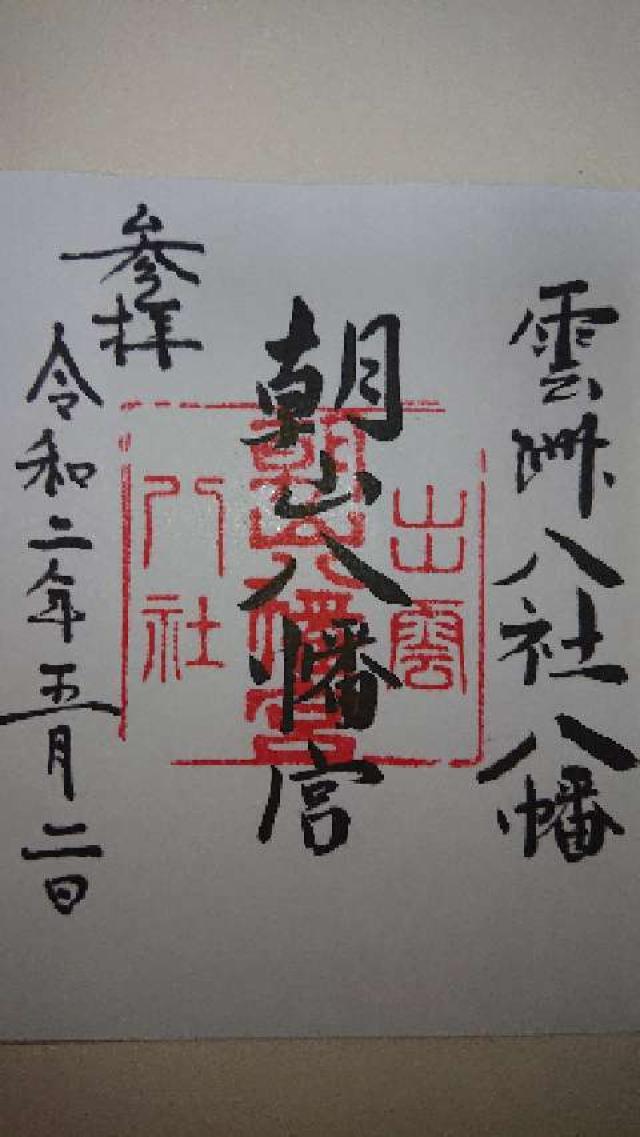 雲州八社八幡
朝山八幡宮
参拝
令和二年五月二日
出雲
朝山八幡宮
八社